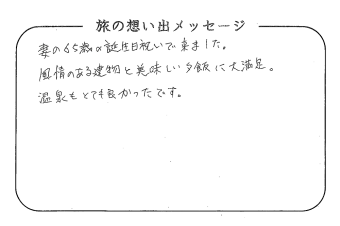 旅の想い出メッセージ
妻の65歳の誕生日祝いで来ました。
風情のある建物と美味しい夕飯に大満足。
温泉もとても良かったです。